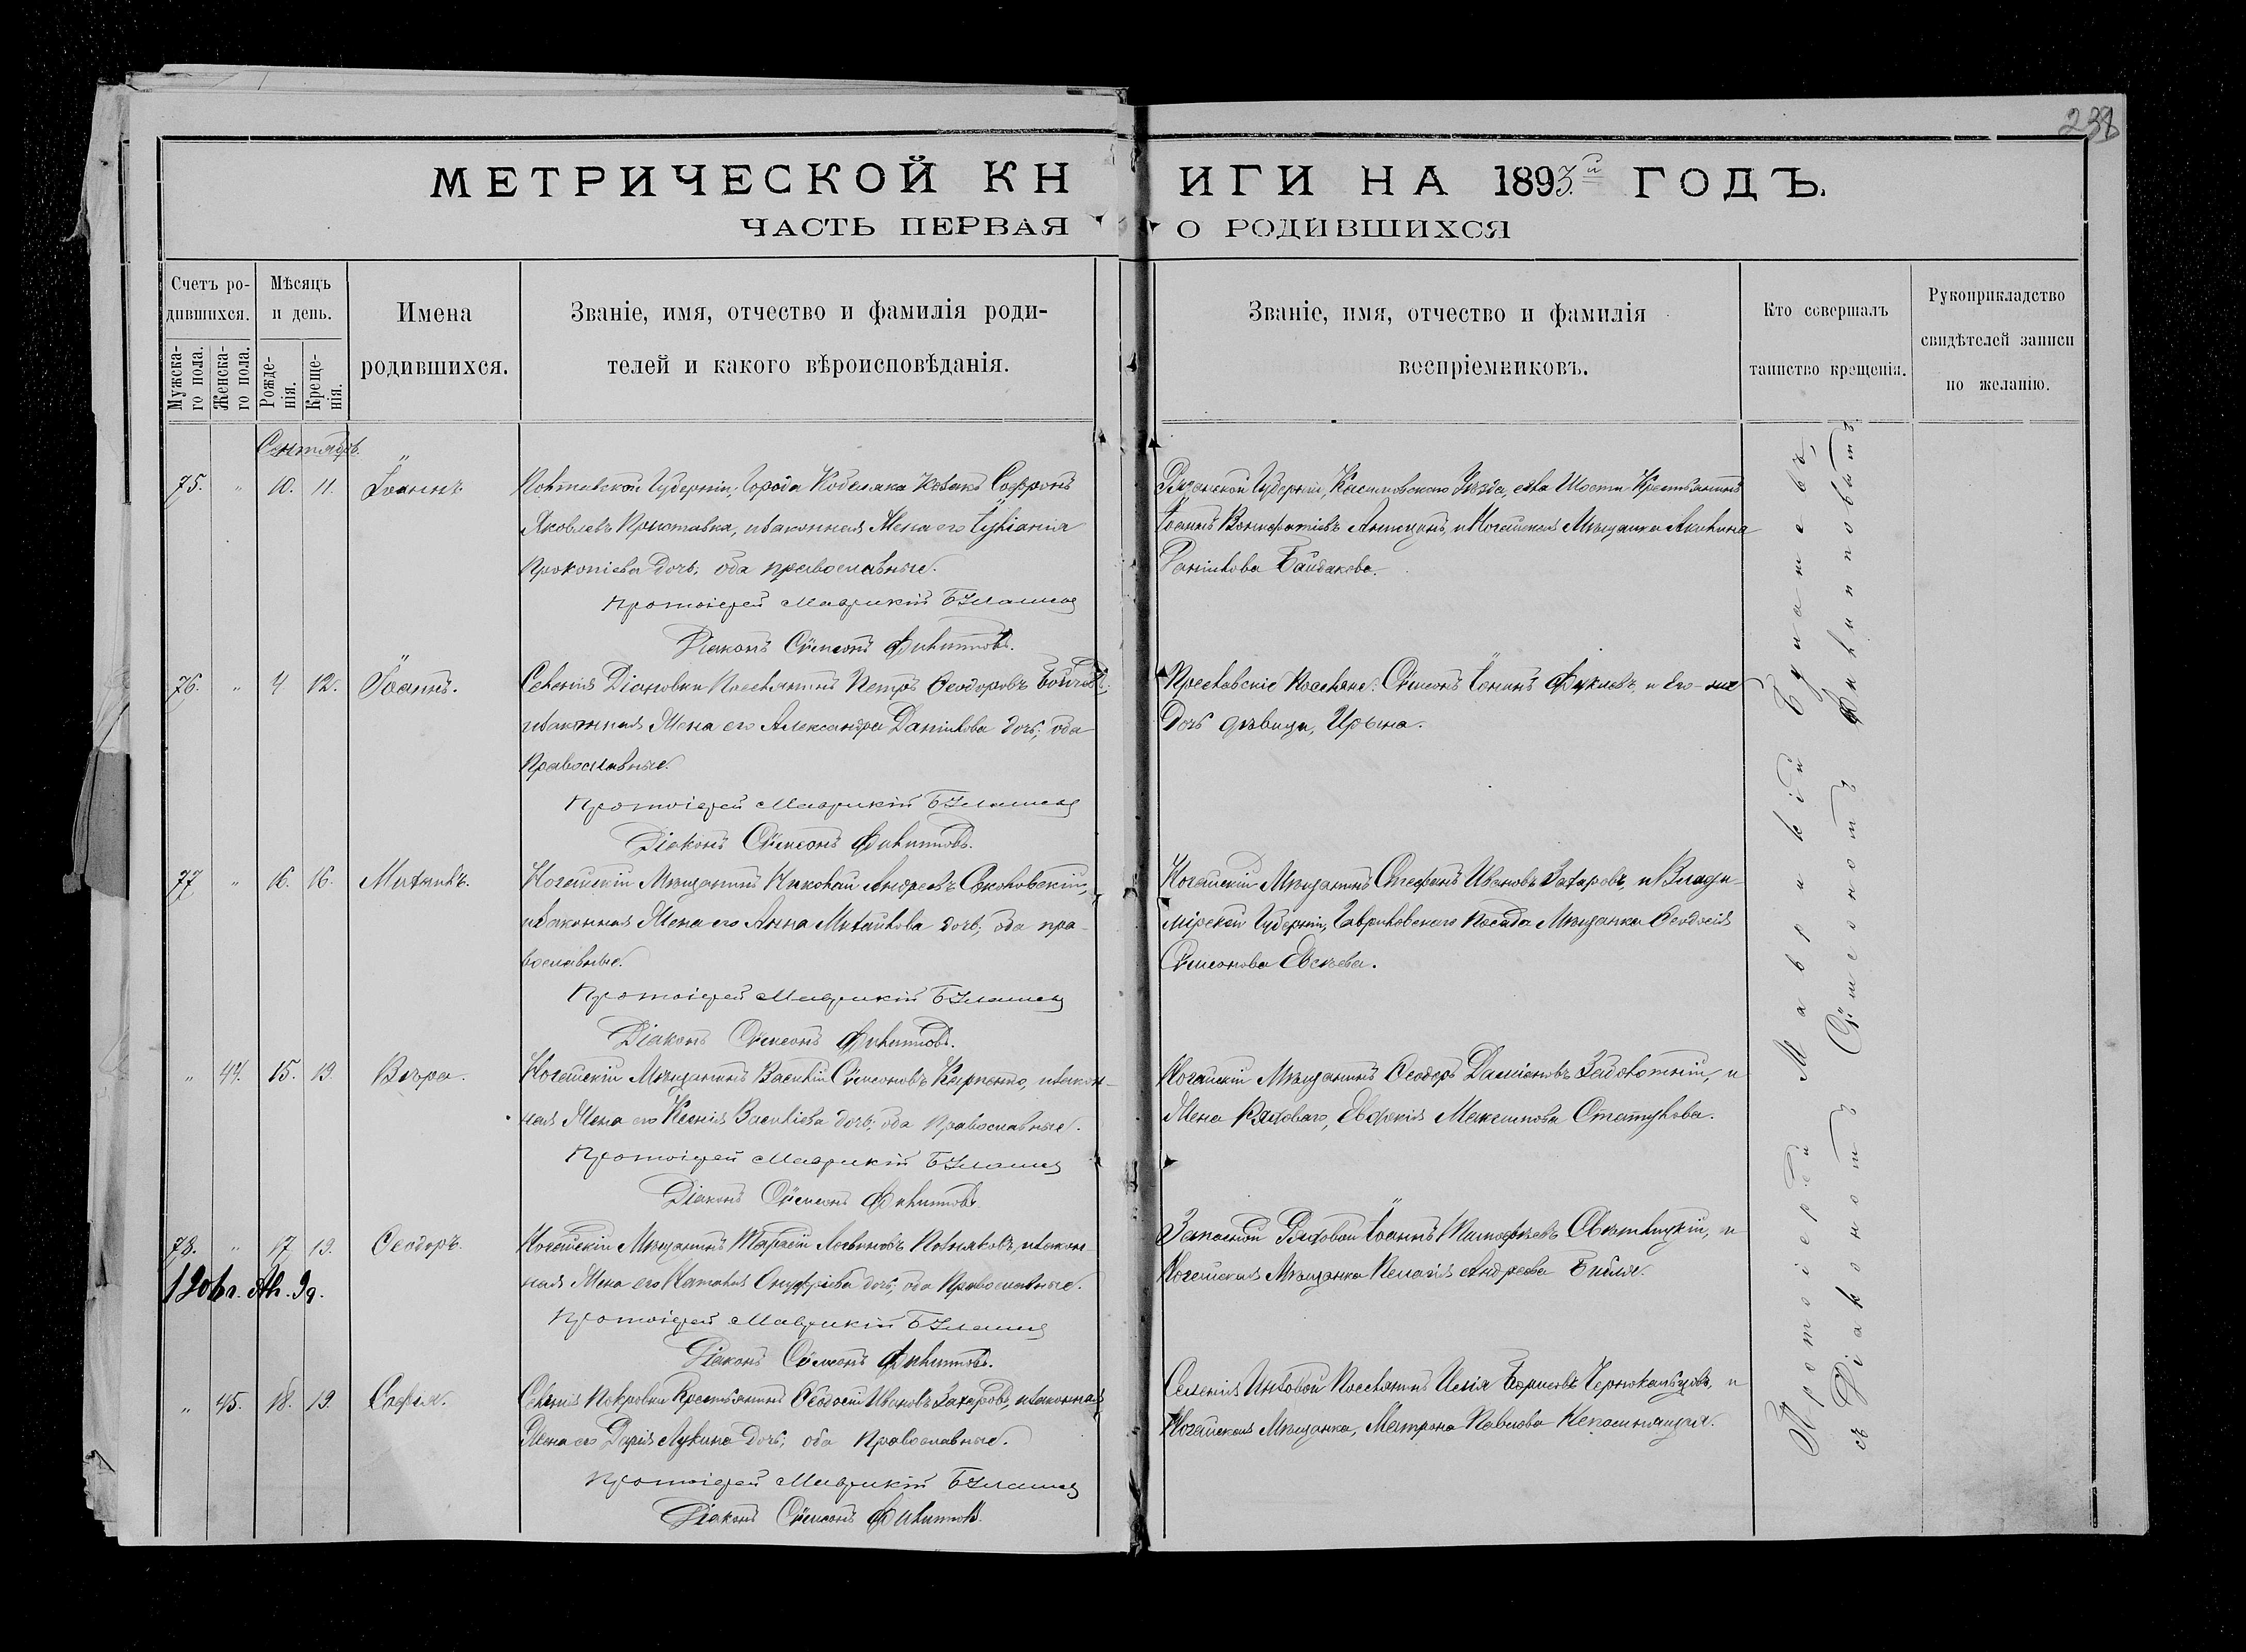 238
МЕТРИЧЕСКОЙ КНИГИ НА 1893.й ГОДЪ.
ЧАСТЬ ПЕРВАЯ О РОДИВШИХСЯ
Счетъ ро-
дившихся.
Мужска-
го пола.
Женска-
го пола.
Мѣсяцъ
и день.
Рожде-
нія.
Креще-
нія.
Имена
родившихся.
Званіе, имя, отчество и фамилія роди-
телей и какого вѣроисповѣданія.
Званіе, имя, отчество и фамилія
воспріемниковъ.
Кто совершалъ
таинство крещенія.
Рукоприкладство
свидѣтелей записи
по желанію.
Сентябрь.
75. " 10. 11. Іоаннъ
Полтавской Губерніи, Города Кобеляка Козакъ Софронъ
Яковлевъ Приставка, изаконная Жена его Іуліанія
Прокопіева дочь; оба православные.
Протоіерей Маврикій
Діаконъ Сѷмеонъ Филипповъ.
Рязанской Губерніи, Касимовскаго Уѣзда, села Шости Крестьянинъ
Іоаннъ Вонифатіевъ и Ногайская Мѣщанка Акилина
Даніилова Байдакова.
76. " 4 12. Іоаннъ.
Селенія Діановки Поселянинъ Петръ Ѳеодоровъ
изаконная Жена его Александра Даніилова дочь; оба
Православные.
Протоіерей Маврикій
Діаконъ Сѷмеонъ Филипповъ.
Поселяне: Сѷмеонъ и Его
дочь дѣвица, Ирина.
77 " 16. 16. Михаилъ.
Ногайскій Мѣщанинъ Николай Андреевъ Соколовскій,
изаконная Жена его Анна Михайлова дочь; оба пра-
вославные.
Протоіерей Маврикій
Діаконъ Сѷмеонъ Филипповъ.
Ногайскій Мѣщанинъ Стефанъ Ивановъ Захаровъ, и Влади-
мірской Губерніи, Гавриловскаго Посада Мѣщанка Ѳеодосія
Сѷмеонова
" 44. 15. 19 Вѣра.
Ногайскій Мѣщанинъ Василій Сѷмеоновъ Карпенко, изакон-
ная Жена его Ксенія Васильева дочь; оба Православные.
Протоіерей Маврикій
Діаконъ Сѷмеонъ Филипповъ.
Ногайскій Мѣщанинъ Ѳеодоръ Даміановъ и
Жена Рядоваго, Максимова
78. " 17 19. Ѳеодоръ.
Ногайскій Мѣщанинъ Тарасій Поляковъ, изакон-
ная Жена его Наталія Онуфріева дочь; оба Православные.
Протоіерей Маврикій
Діаконъ Сѷмеонъ Филипповъ.
Запасной Рядовой Іоаннъ Тимоѳеевъ и
Ногайская Мѣщанка Пелагія Андреева
" 45. 18. 19. Софія.
Селенія Покровки Крестьянинъ Ѳеодосій Ивановъ Захаровъ, изаконная
Жена его Дарія Лукина дочь; оба Православные.
Протоіерей Маврикій
Діаконъ Сѷмеонъ Филипповъ.
Селенія Поселянинъ Илія Борисовъ и
Ногайская Мѣщанка, Матрона Павлова
Протоіерей Маврикій
съ Діакономъ Сѷмеономъ Филипповымъ.